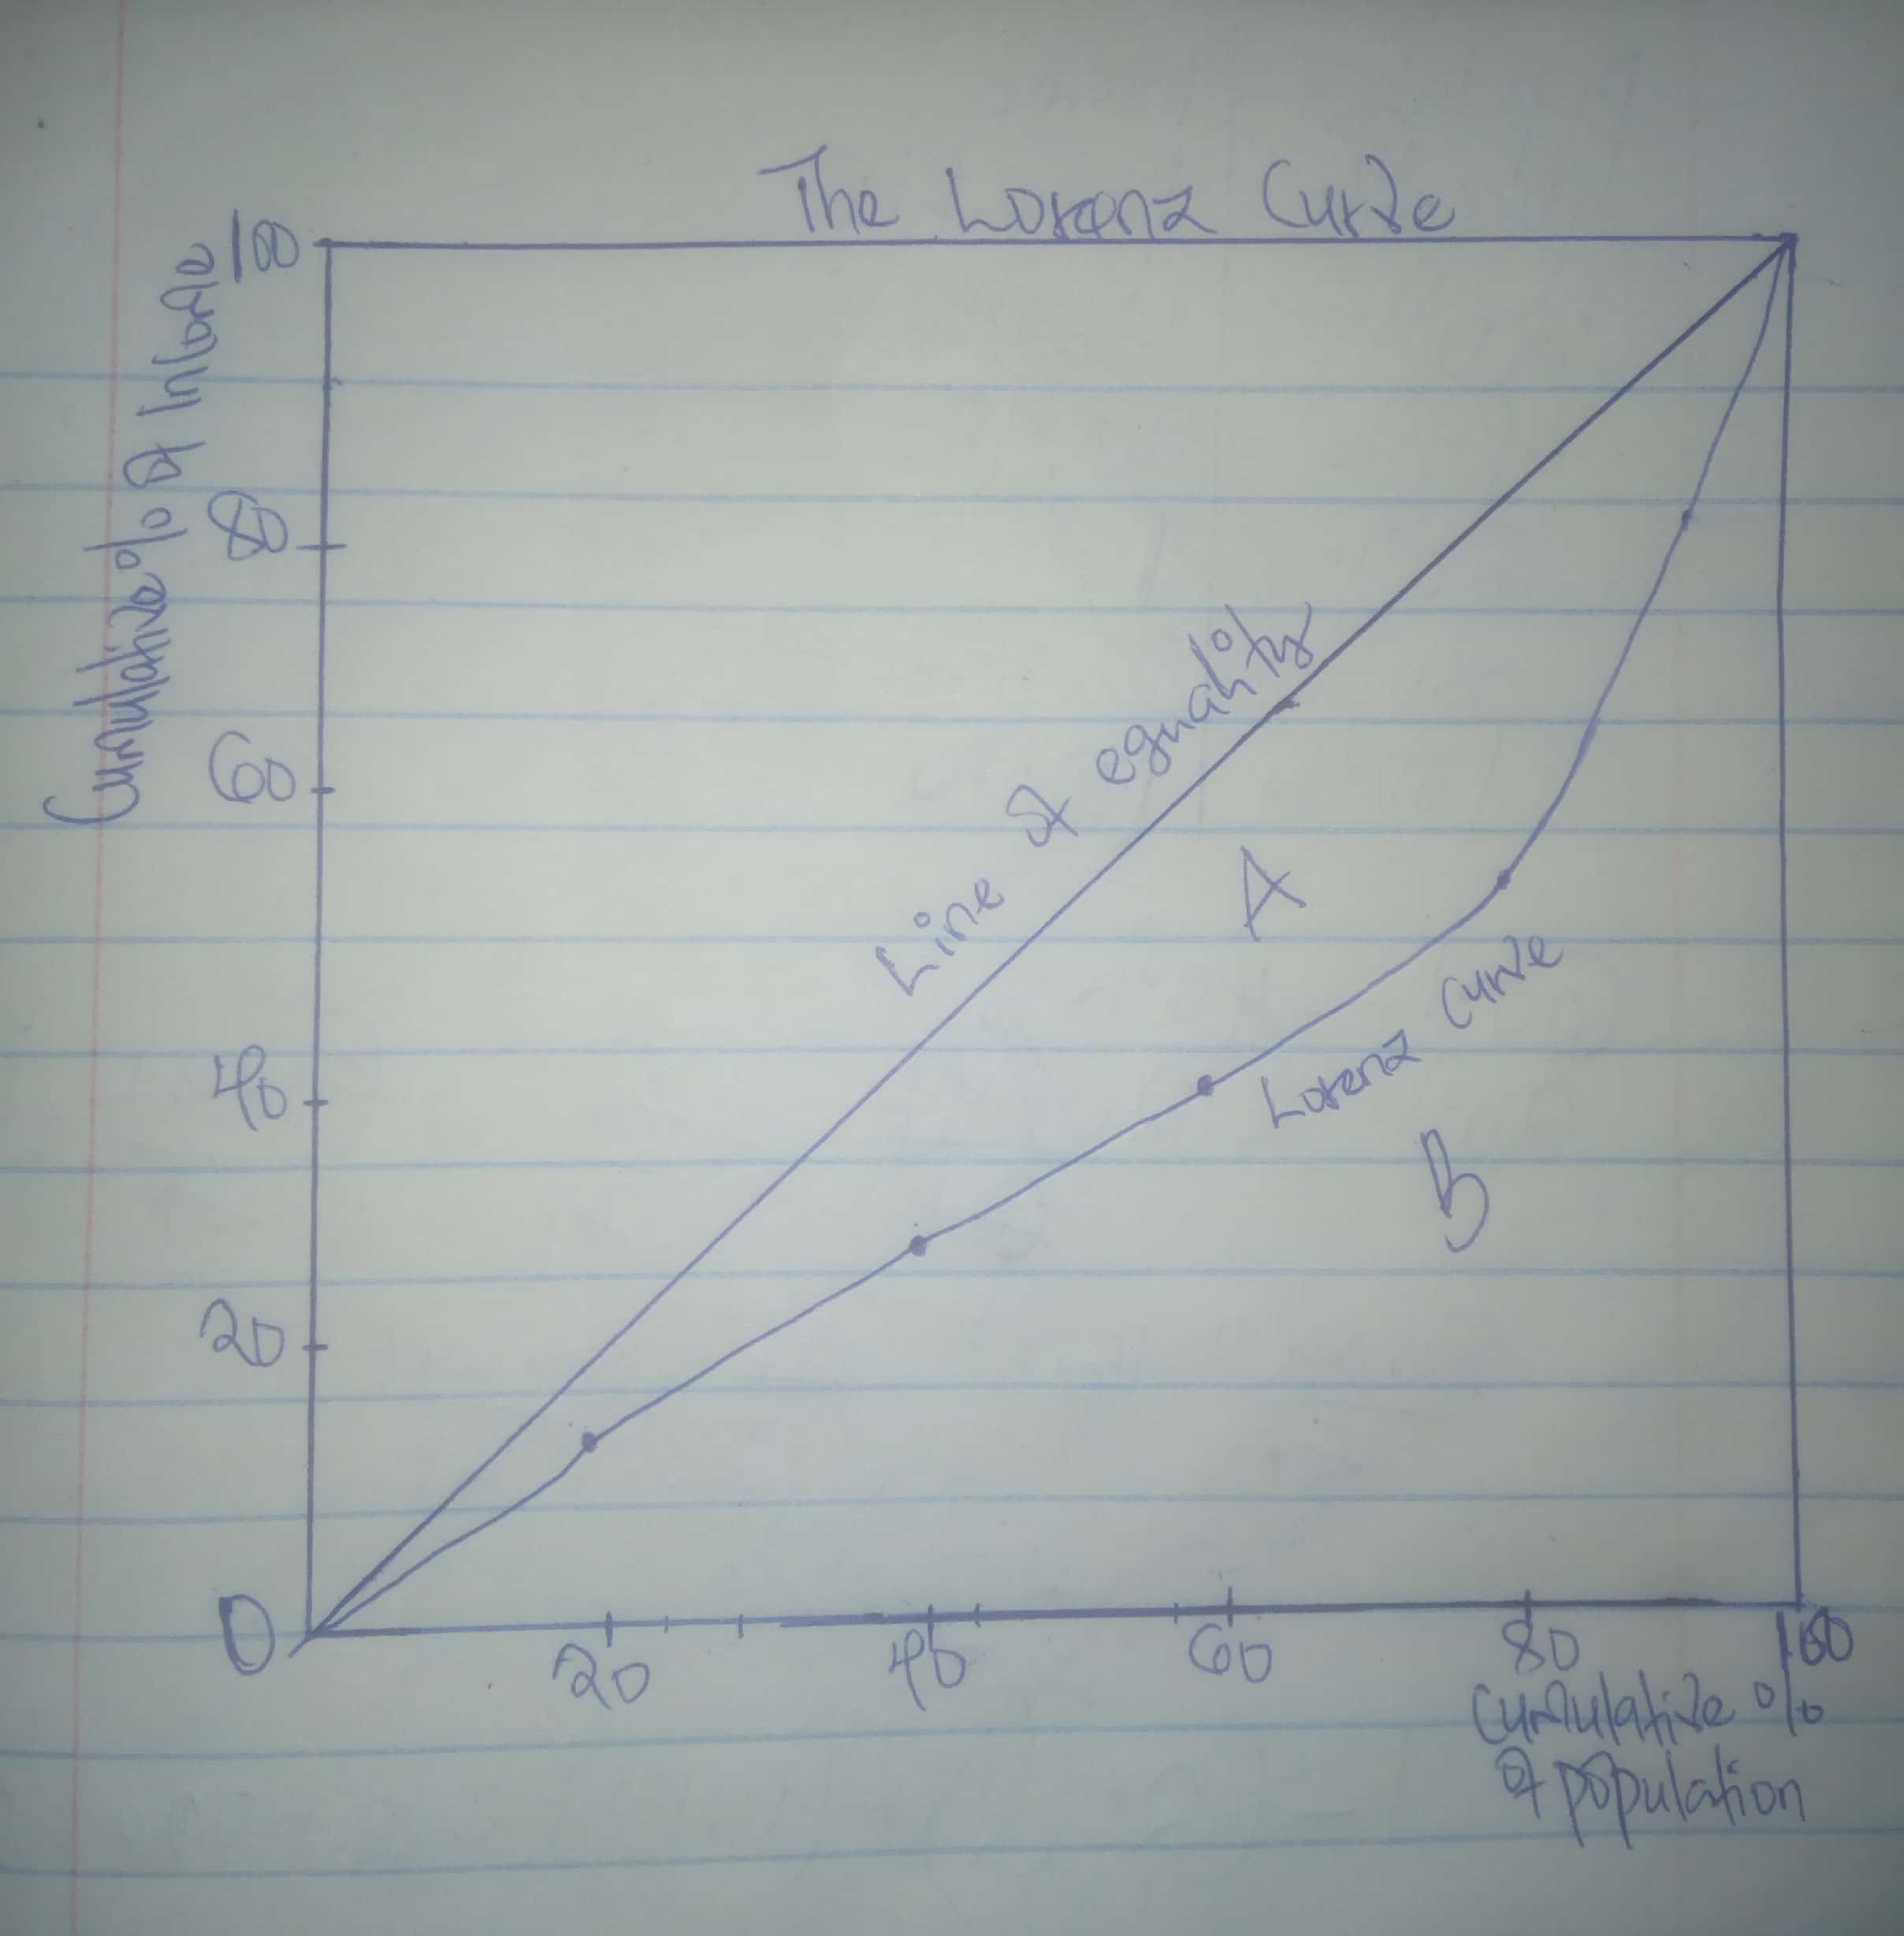 The Lorenz Curve
Cumulative % of Income
100
80
60
40
20
0
Line of equality
A
Lorenz Curve
B
20
40
60
80
100
Cumulative %
of population